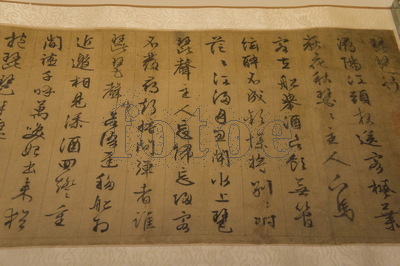 琵琶行
潯陽江頭夜送客楓葉
荻花秋瑟〻主人下馬
客在船舉酒欲飲無管
絃醉不成歡慘將別〻時
茫〻江浸月忽聞水上琵
琶聲主人忘歸客
不發尋聲暗問彈者誰
琵琶聲停欲語遲移船相
近邀相見添酒回燈重
開宴千呼萬喚始出來猶
抱琵琶半遮
fotoe